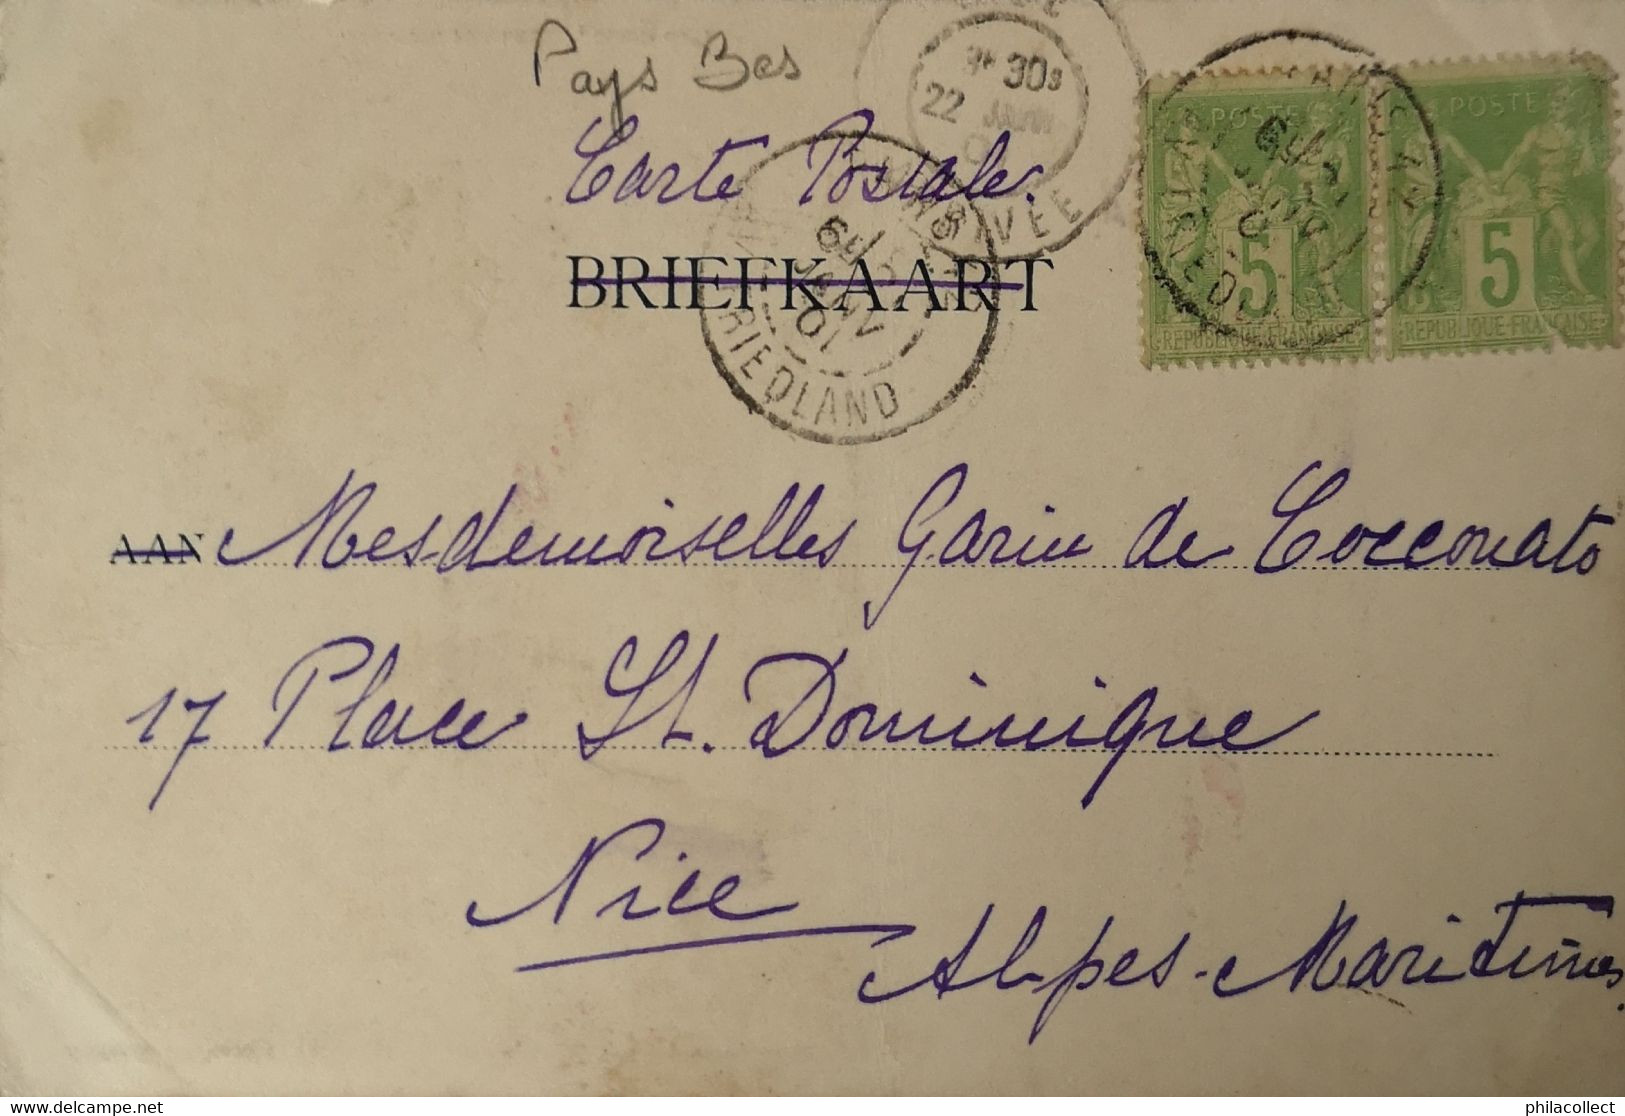 Pays Bas
Carte Postale.
BRIEFKAART
9 30s
22 JANV
ARRIVÉE
6E
JANV
01
FRIEDLAND
PARIS
POSTE
5
REPUBLIQUE FRANÇAISE
POSTE
5
REPUBLIQUE FRANÇAISE
AAN Mesdemoiselles Garin de Cocconato
17 Place St. Dominique
Nice
Alpes-Maritimes.
delcampe.net
philacollect